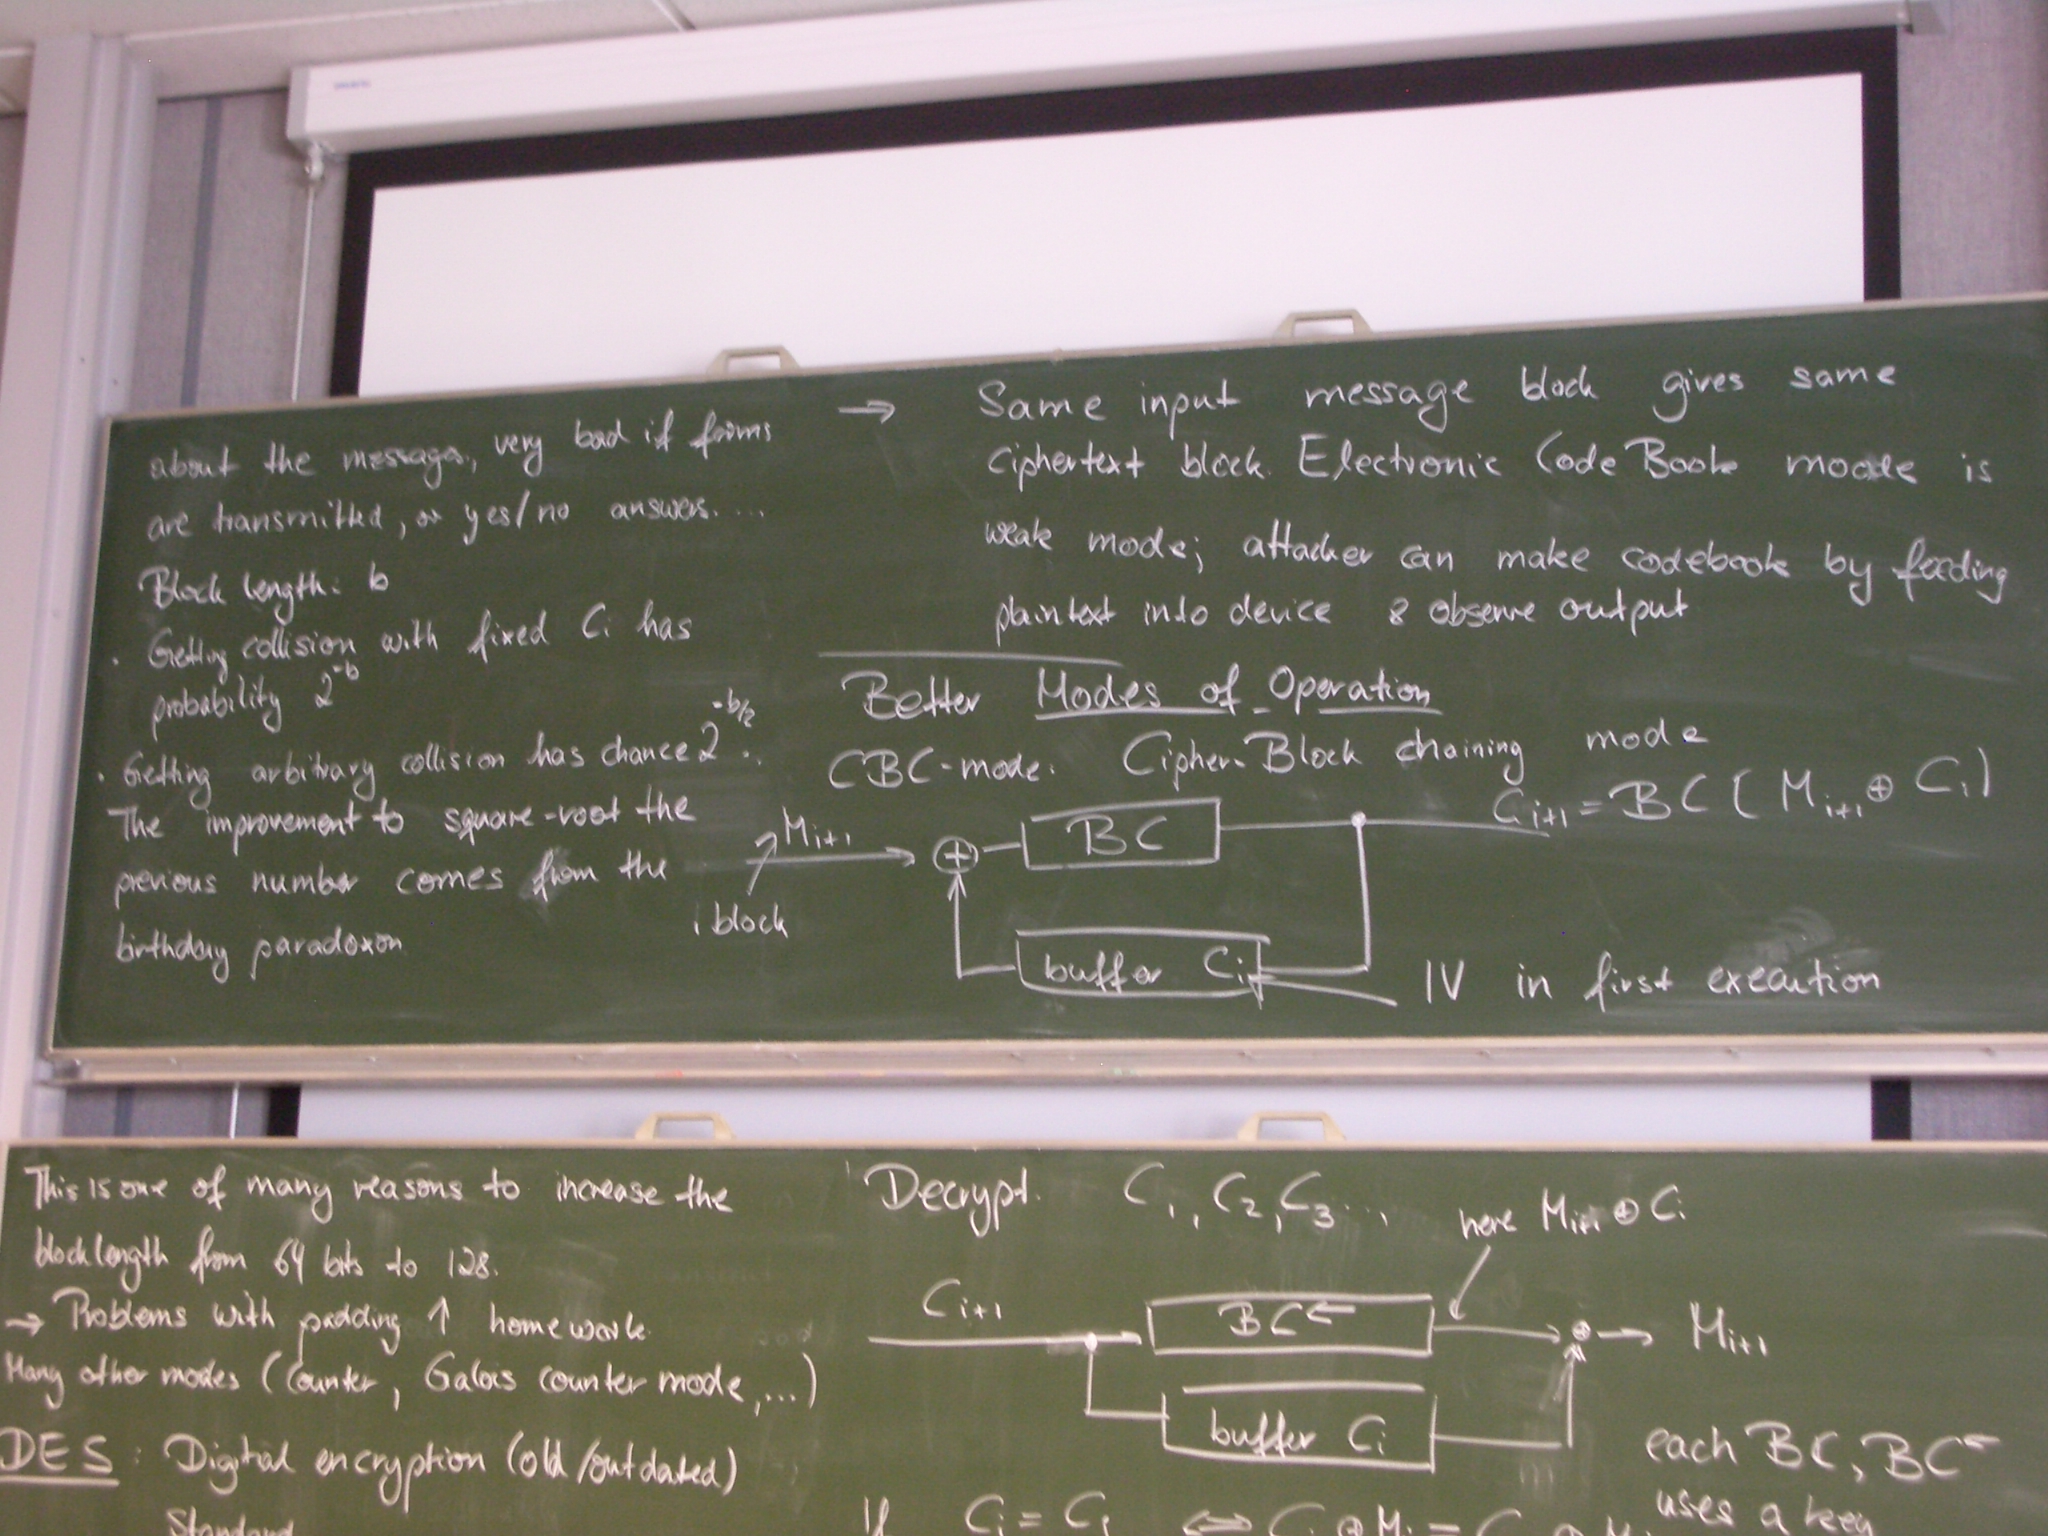 about the message, very bad if forms
are transmitted, or yes/no answers....
Block length: b
· Getting collision with fixed Ci has
probability 2^-b
· Getting arbitrary collision has chance 2^-b/2..
The improvement to square-root the
previous number comes from the
birthday paradoxon
→ Same input message block gives same
ciphertext block. Electronic CodeBook mode is
weak mode; attacker can make codebook by feeding
plaintext into device & observe output
Better Modes of Operation
CBC-mode: Cipher-Block chaining mode
Mi+1
i block
⊕
BC
Ci+1 = BC( Mi+1 ⊕ Ci)
buffer Ci
IV in first execution
This is one of many reasons to increase the
block length from 64 bits to 128.
→ Problems with padding ↑ homework.
Many other modes (Counter, Galois counter mode,...)
DES: Digital encryption (old/outdated)
Standard
Decrypt. C1, C2, C3...
here Mi+1 ⊕ Ci
Ci+1
BC←
⊕
Mi+1
buffer Ci
each BC, BC←
uses a key
If Ci = Cj ⇔